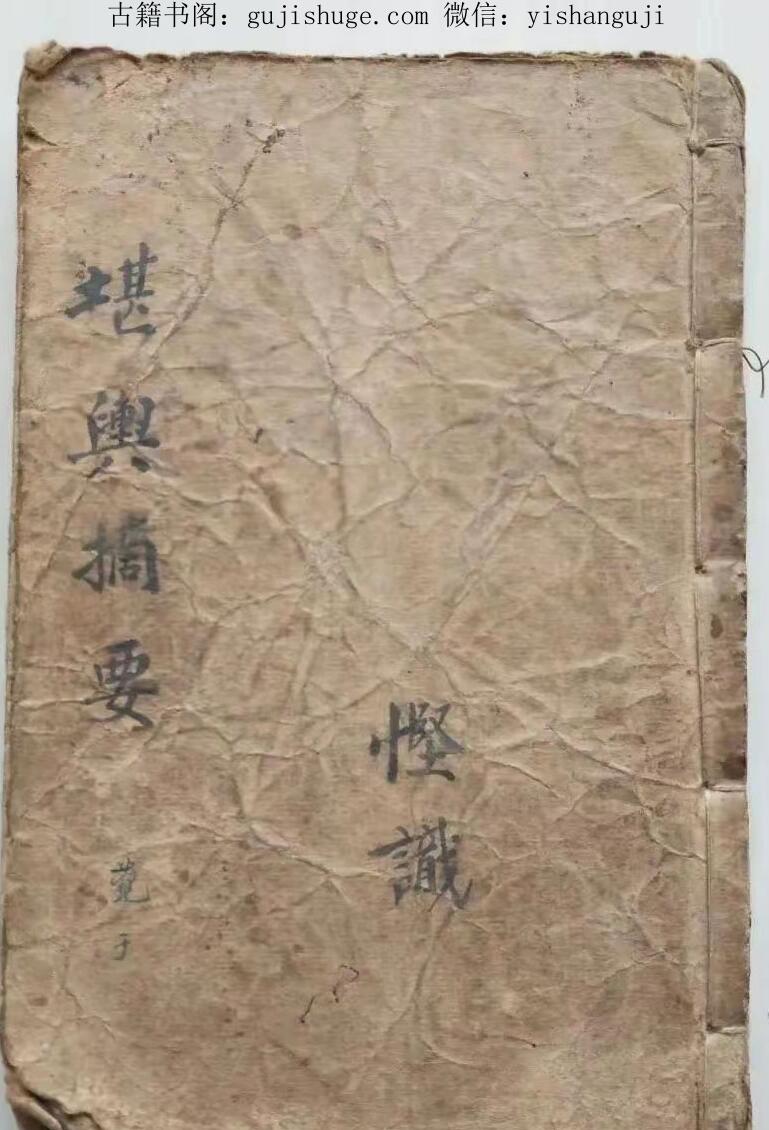 古籍书阁：gujishuge.com 微信：yishanguji
慳識
堪輿摘要